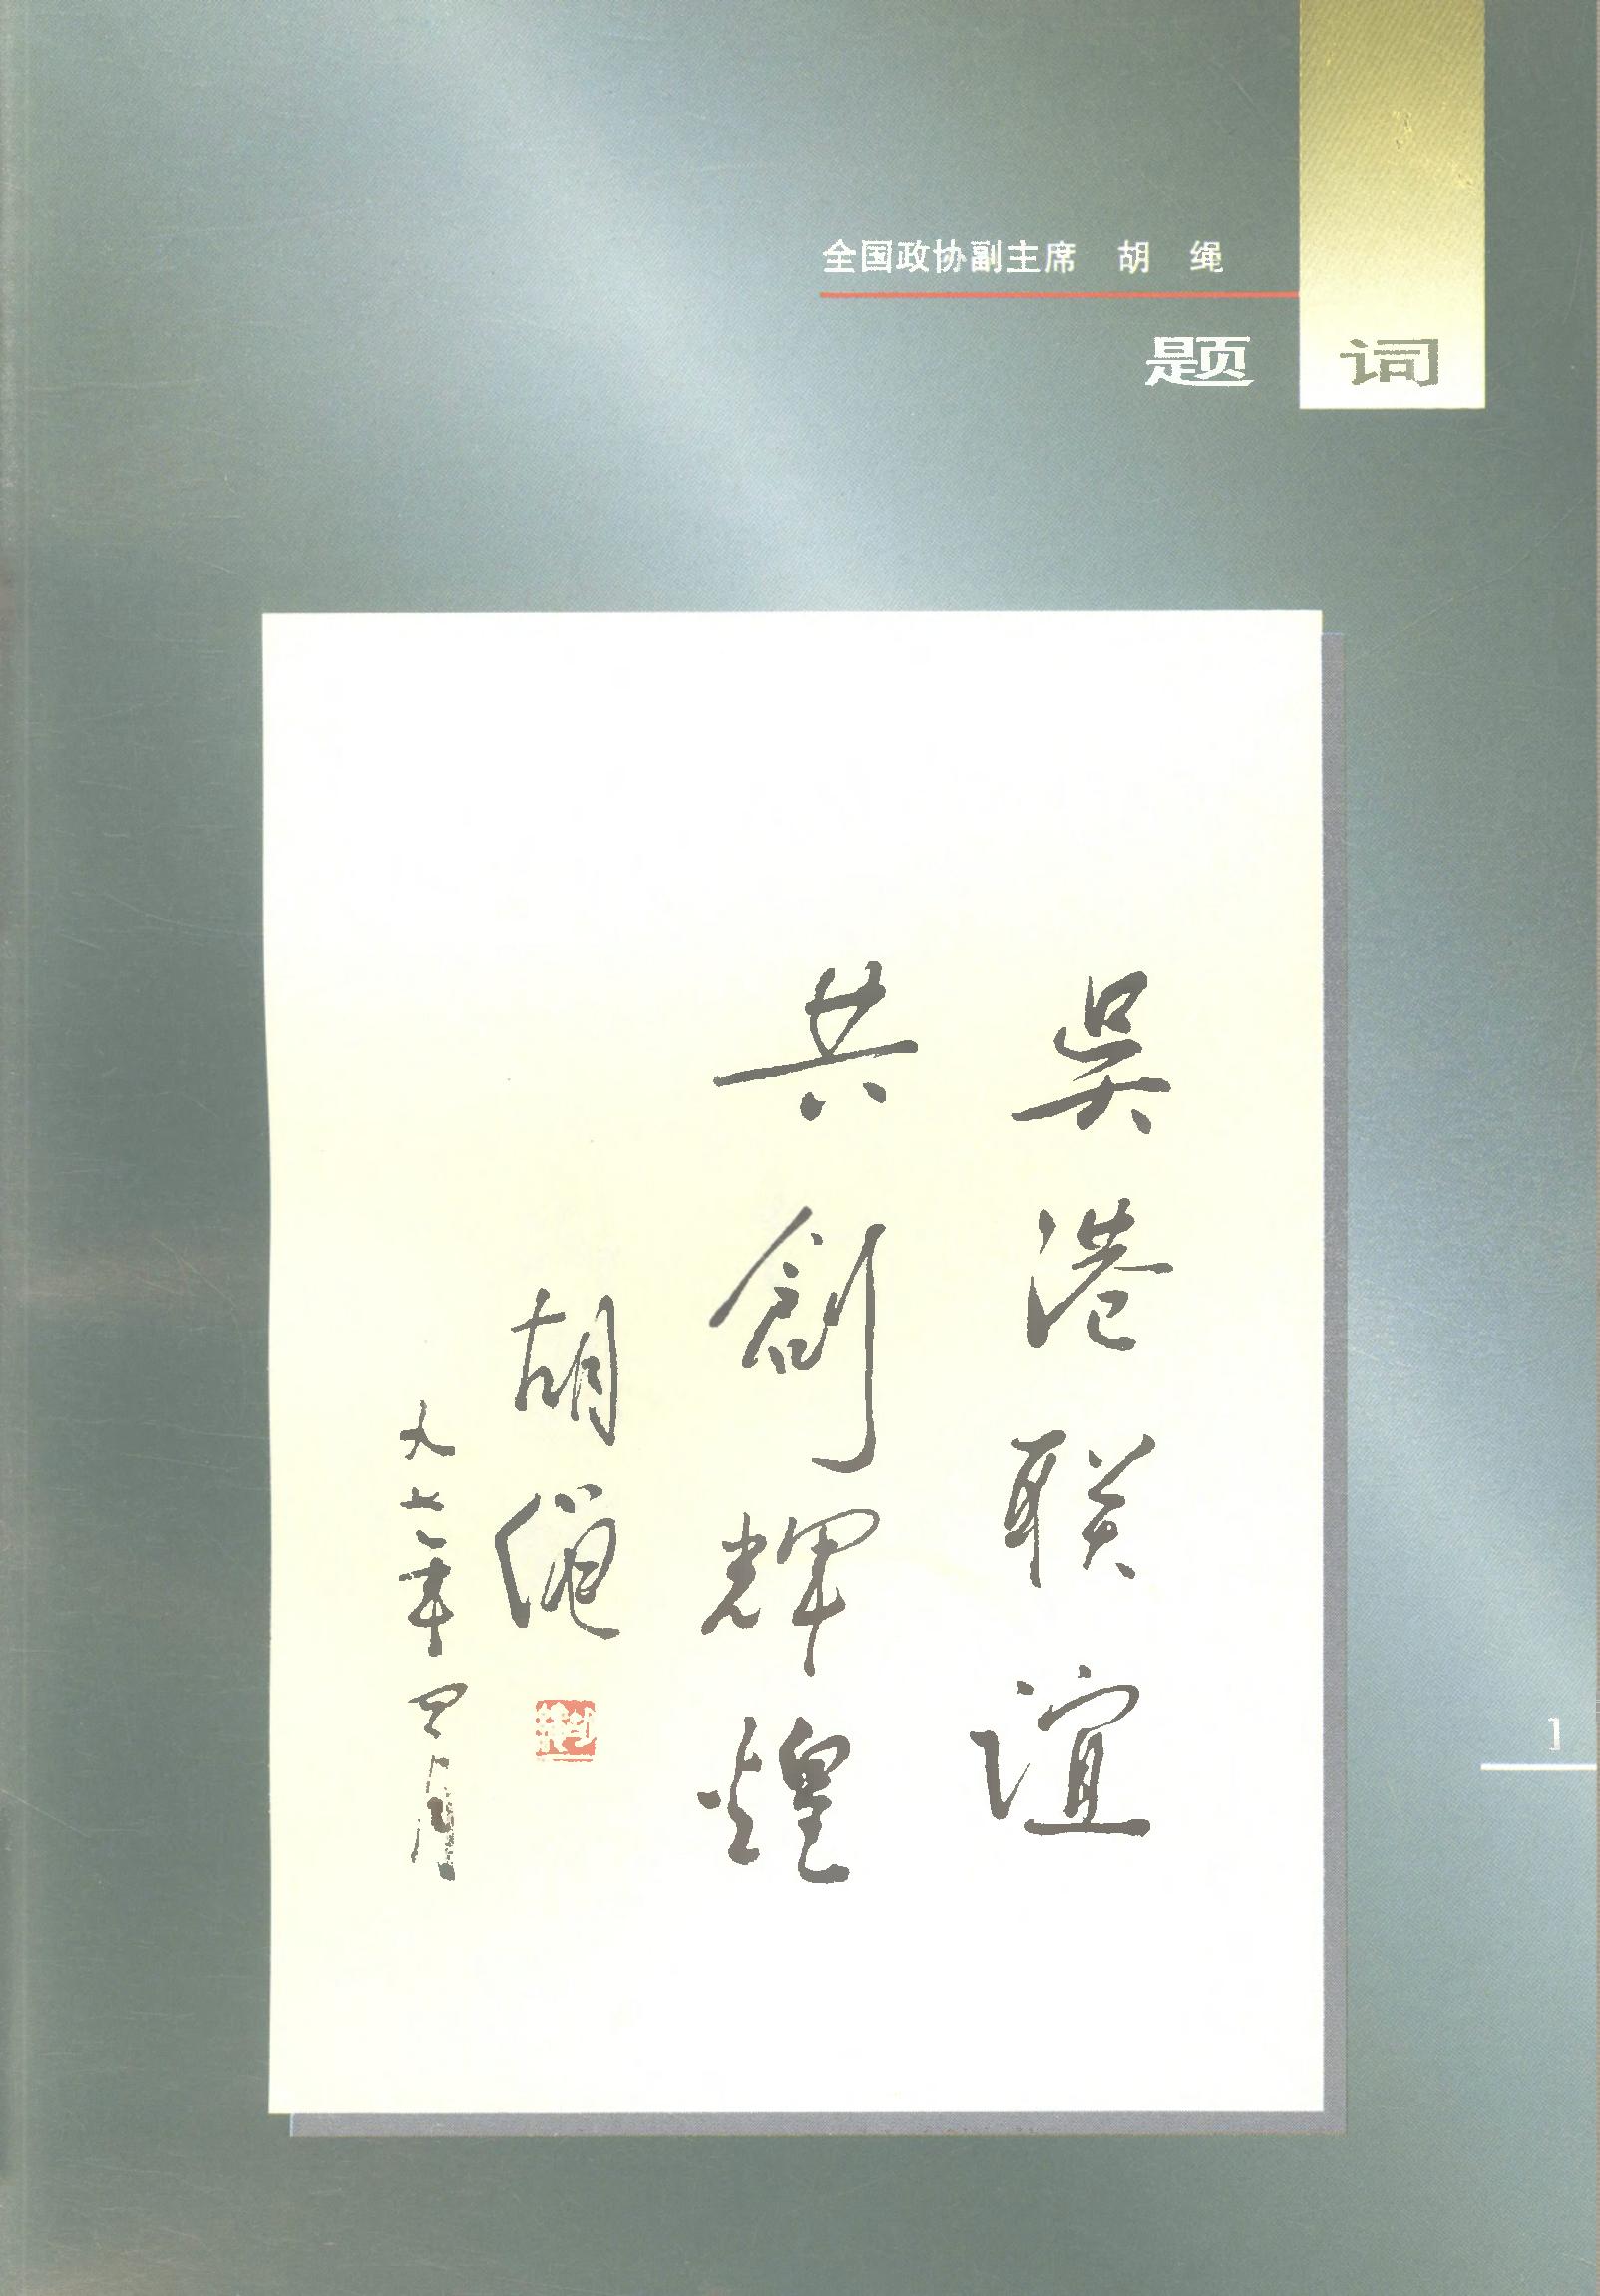 全国政协副主席 胡 绳
题 词
吴港联谊
共創輝煌
胡绳
九七年四月
1